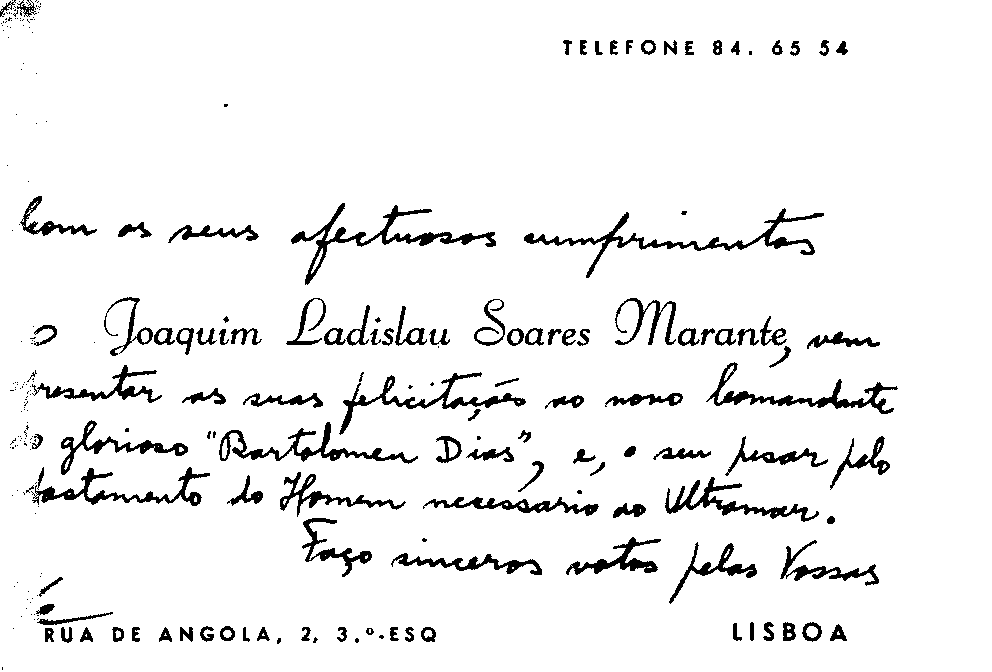 TELEFONE 84. 65 54
Com os seus afectuosos cumprimentos
o Joaquim Ladislau Soares Marante, vem
apresentar as suas felicitações ao novo Comandante
do glorioso "Bartolomeu Dias", e, o seu pesar pelo
afastamento do Homem necessario ao Ultramar.
Faço sinceros votos pelas Vossas
RUA DE ANGOLA, 2, 3.º-ESQ LISBOA